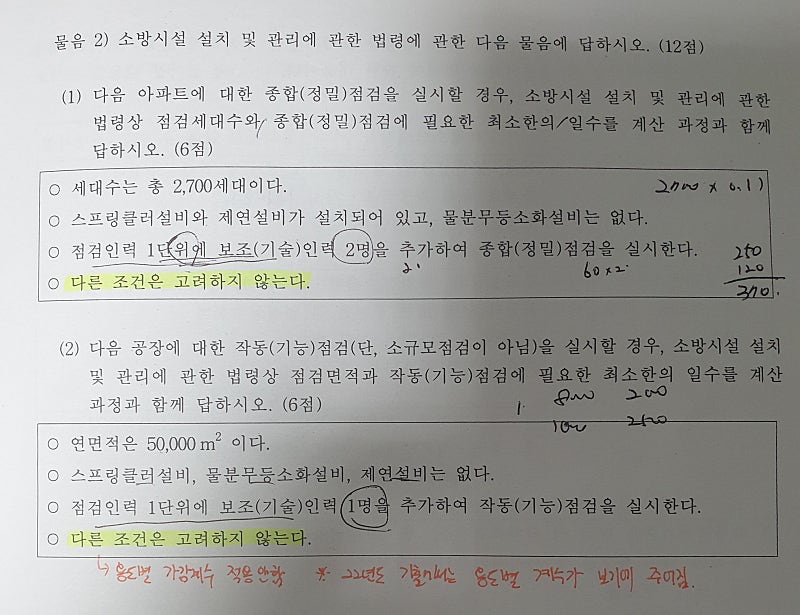 물음 2) 소방시설 설치 및 관리에 관한 법령에 관한 다음 물음에 답하시오. (12점)
(1) 다음 아파트에 대한 종합(정밀)점검을 실시할 경우, 소방시설 설치 및 관리에 관한
법령상 점검세대수와 종합(정밀)점검에 필요한 최소한의 일수를 계산 과정과 함께
답하시오. (6점)
○ 세대수는 총 2,700세대이다.
○ 스프링클러설비와 제연설비가 설치되어 있고, 물분무등소화설비는 없다.
○ 점검인력 1단위에 보조(기술)인력 2명을 추가하여 종합(정밀)점검을 실시한다.
60 x 2
250
120
370.
○ 다른 조건은 고려하지 않는다.
(2) 다음 공장에 대한 작동(기능)점검(단, 소규모점검이 아님)을 실시할 경우, 소방시설 설치
및 관리에 관한 법령상 점검면적과 작동(기능)점검에 필요한 최소한의 일수를 계산
과정과 함께 답하시오. (6점)
○ 연면적은 50,000 m² 이다.
○ 스프링클러설비, 물분무등소화설비, 제연설비는 없다.
○ 점검인력 1단위에 보조(기술)인력 1명을 추가하여 작동(기능)점검을 실시한다.
○ 다른 조건은 고려하지 않는다.
↳ 용도별 가감계수 적용안함 ※ 22년도 기출에서는 용도별 계수가 보기에 주어짐.